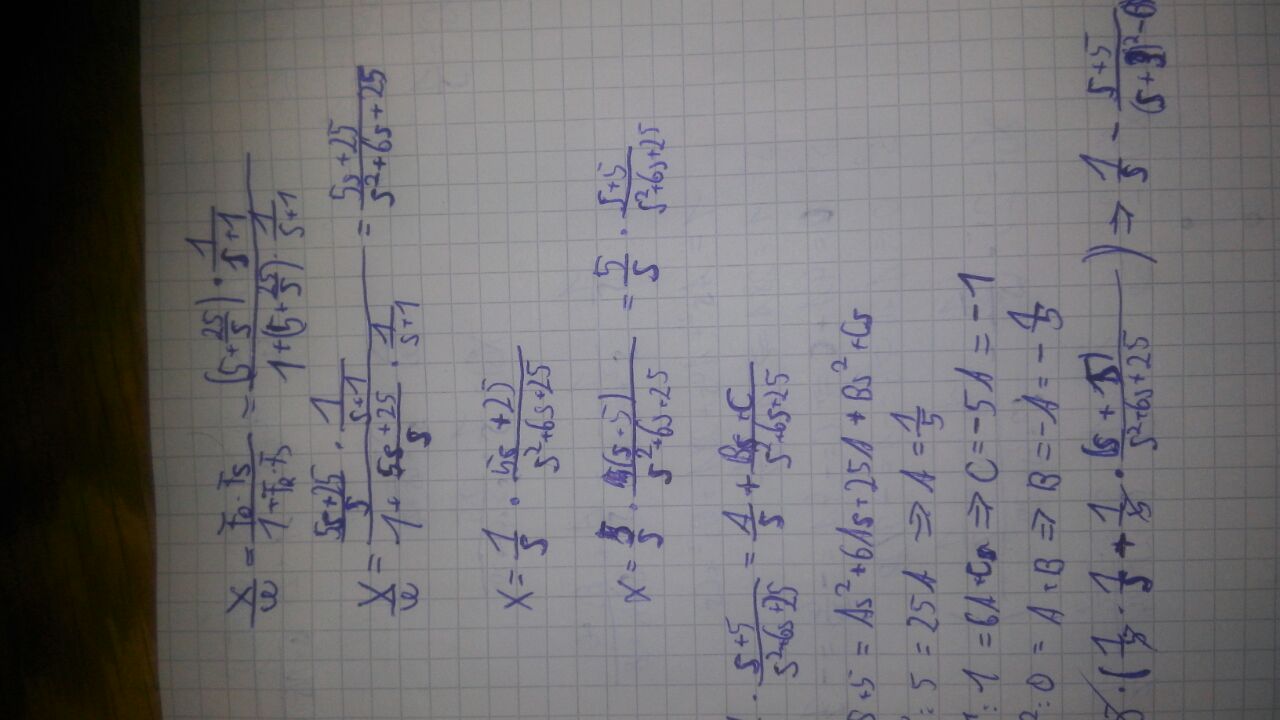 X/w = (F_R · F_S)/(1 + F_R · F_S) = ((5 + 25/s) · 1/(s+1))/(1 + (5 + 25/s) · 1/(s+1))
X/w = ((5s+25)/s · 1/(s+1))/(1 + (5s+25)/s · 1/(s+1)) = (5s+25)/(s²+6s+25)
X = 1/s · (5s+25)/(s²+6s+25)
X = 5/s · (s+5)/(s²+6s+25) = 5/s · (s+5)/(s²+6s+25)
· (s+5)/(s²+6s+25) = A/s + (Bs+C)/(s²+6s+25)
s+5 = As²+6As+25A+Bs²+Cs
: 5 = 25A ⇒ A = 1/5
: 1 = 6A+C ⇒ C = -5A = -1
: 0 = A+B ⇒ B = -A = -1/5
5 · (1/5 · 1/s + 1/5 · / (s²+6s+25)) ⇒ 1/s - (s+5)/(s+3)²